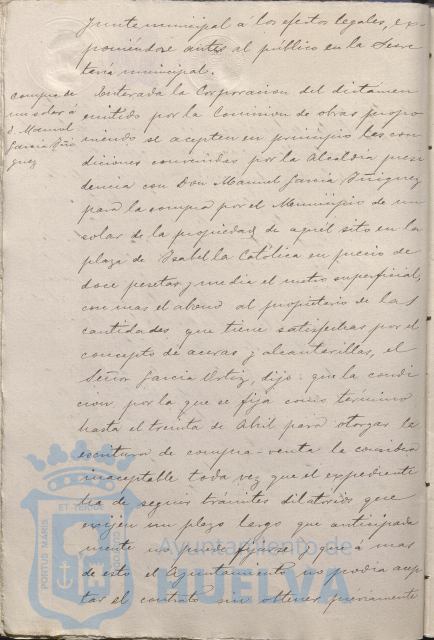 Junta municipal á los efectos legales, ex-
poniéndose antes al público en la Secre-
taría municipal.
compra de
un solar á
D. Manuel
Garcia Yñi-
guez
Enterada la Corporacion del dictamen
emitido por la Comision de obras propo-
niendo se acepten en principio las con
diciones convenidas por la Alcaldia presi
dencia con Don Manuel Garcia Yñiguez
para la compra por el Municipio de un
solar de la propiedad de aquél sito en la
plaza de Isabel la Católica en precio de
doce pesetas y media el metro superficial,
con mas el abono al propietario de las
cantidades que tiene satisfechas por el
concepto de aceras y alcantarillas, el
Señor Garcia Ortiz, dijo: que la condi
cion por la que se fija como término
hasta el treinta de Abril para otorgar la
escritura de compra-venta la considera
inaceptable toda vez que el expediente
ha de seguir trámites dilatorios que
exijen un plazo largo que anticipada
mente no puede fijarse y que á mas
de esto el Ayuntamiento no podia acep
tar el contrato sin obtener previamente
PORTUS MARIS
ET TERRE
Ayuntamiento de
HUELVA